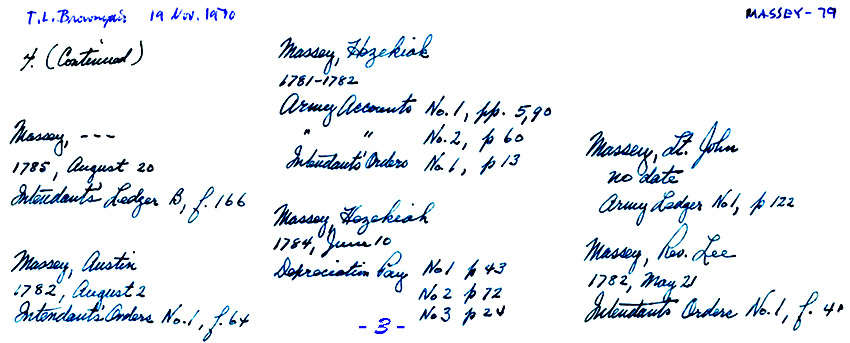 T.L. 19 Nov. 1970
MASSEY-79
4. (Continued)
Massey, ---
1785, August 20
Intendants' Ledger B, f. 166
Massey, Austin
1782, August 2
Intendants' Orders No. 1, f. 64
Massey, Hezekiah
1781-1782
Army Accounts No. 1, pp. 5,90
" " No. 2, p 60
Intendants' Orders No. 1, p 13
Massey, Hezekiah
1784, June 10
Depreciation Pay No 1 p 43
No 2 p 72
No 3 p 24
Massey, Lt. John
no date
Army Ledger No 1, p 122
Massey, Rev. Lee
1782, May 21
Intendants Orders No. 1, f.
- 3 -